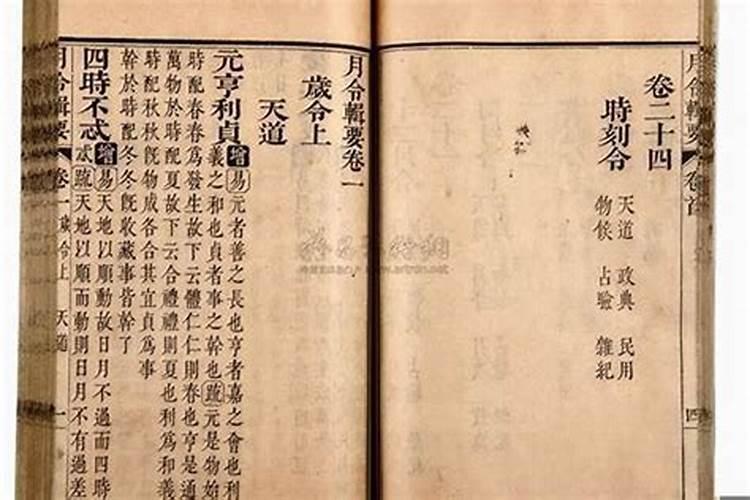 月令輯要 卷首 四
卷二十四
時刻令
天道 政典 民用
物候 占驗 雜紀
月令輯要卷一
歲令上
天道
元亨利貞增易元者善之長也亨者嘉之會也利
義之和也貞者事之幹也疏元是物始
時配春春為發生故下云體仁仁則春也亨是通
萬物於時配夏故下云合禮禮則夏也利為和義
時配秋秋旣物成各合其宜貞為事
幹於時配冬冬旣收藏事皆幹了
四時不忒增易天地以順動故日月不過而四時
不忒疏天地以順而動則日月不有過差
月令輯要 卷一 歲令上 天道 一